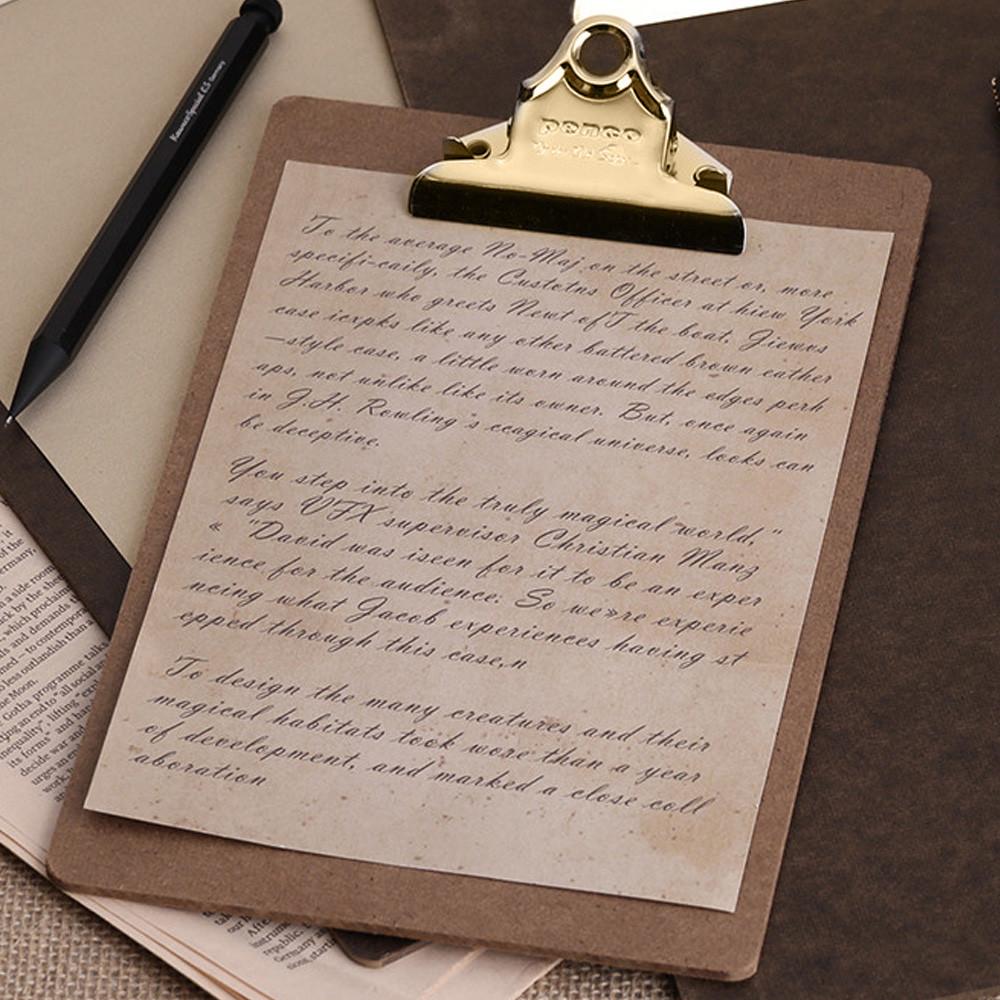 KawecoSpecial 0.5 Germany
penco
To the average No-Maj on the street or, more
specifi-caily, the Custotns Officer at hiew York
Harbor who greets Newt ofT the boat, Jiewus
case icxpks like any other battered brown eather
—style case, a little worn around the edges perh
aps, not unlike like its owner. But, once again
in J.H. Rowling's ccagical universe, looks can
be deceptive.
You step into the truly magical world,"
says VFX supervisor Christian Manz
« "David was iseen for it to be an exper
ience for the audience: So we»re experie
ncing what Jacob experiences having st
epped through this case.n
To design the many creatures and their
magical habitats took wore than a year
of development, and marked a close coll
aboration
of the
ermany,
a side room
ck by the she
, which proclaim
ls and demands
med — to contempor
less outlandish than a
he Moon.
Gotha programme talks
ing an end to "all social an
inequality", lifting "expl
its forms" and
decide war and
urges an en
work,
take
our
Afte
instrume
republic
Germany